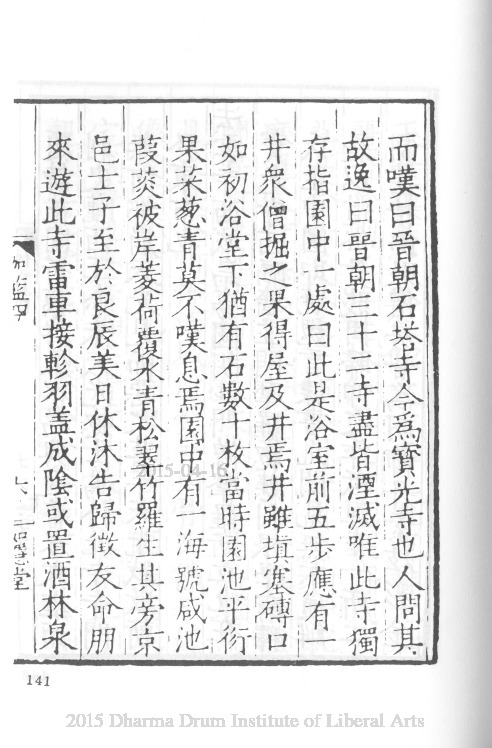 而嘆曰晉朝石塔寺今爲寶光寺也人問其
故逸曰晉朝三十二寺盡皆湮滅唯此寺獨
存指園中一處曰此是浴室前五步應有一
井衆僧掘之果得屋及井焉井雖填塞磚口
如初浴堂下猶有石數十枚當時園池平衍
果菜葱青莫不嘆息焉園中有一海號咸池
葭菼被岸菱荷覆水青松翠竹羅生其旁京
邑士子至於良辰美日休沐告歸徵友命朋
來遊此寺雷車接軫羽盖成陰或置酒林泉
伽藍四
141
2015-04-16
2015 Dharma Drum Institute of Liberal Arts